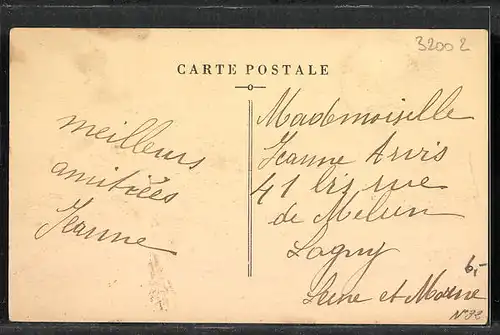 32002
CARTE POSTALE
meilleurs
amitiées
Jeanne
Mademoiselle
Jeanne Arvis
41 bis rue
de Melun
Lagny
Seine et Marne
6,-